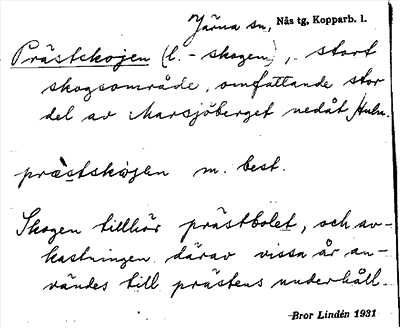 Järna sn, Nås tg, Kopparb. l.
Prästskojen (l. -skogen), stort
skogsområde, omfattande stor
del av Marsjöberget nedåt Huln.
præstskòjen m. best.
Skogen tillhör prästbolet, och av-
kastningen därav vissa år an-
vändes till prästens underhåll.
Bror Lindén 1931